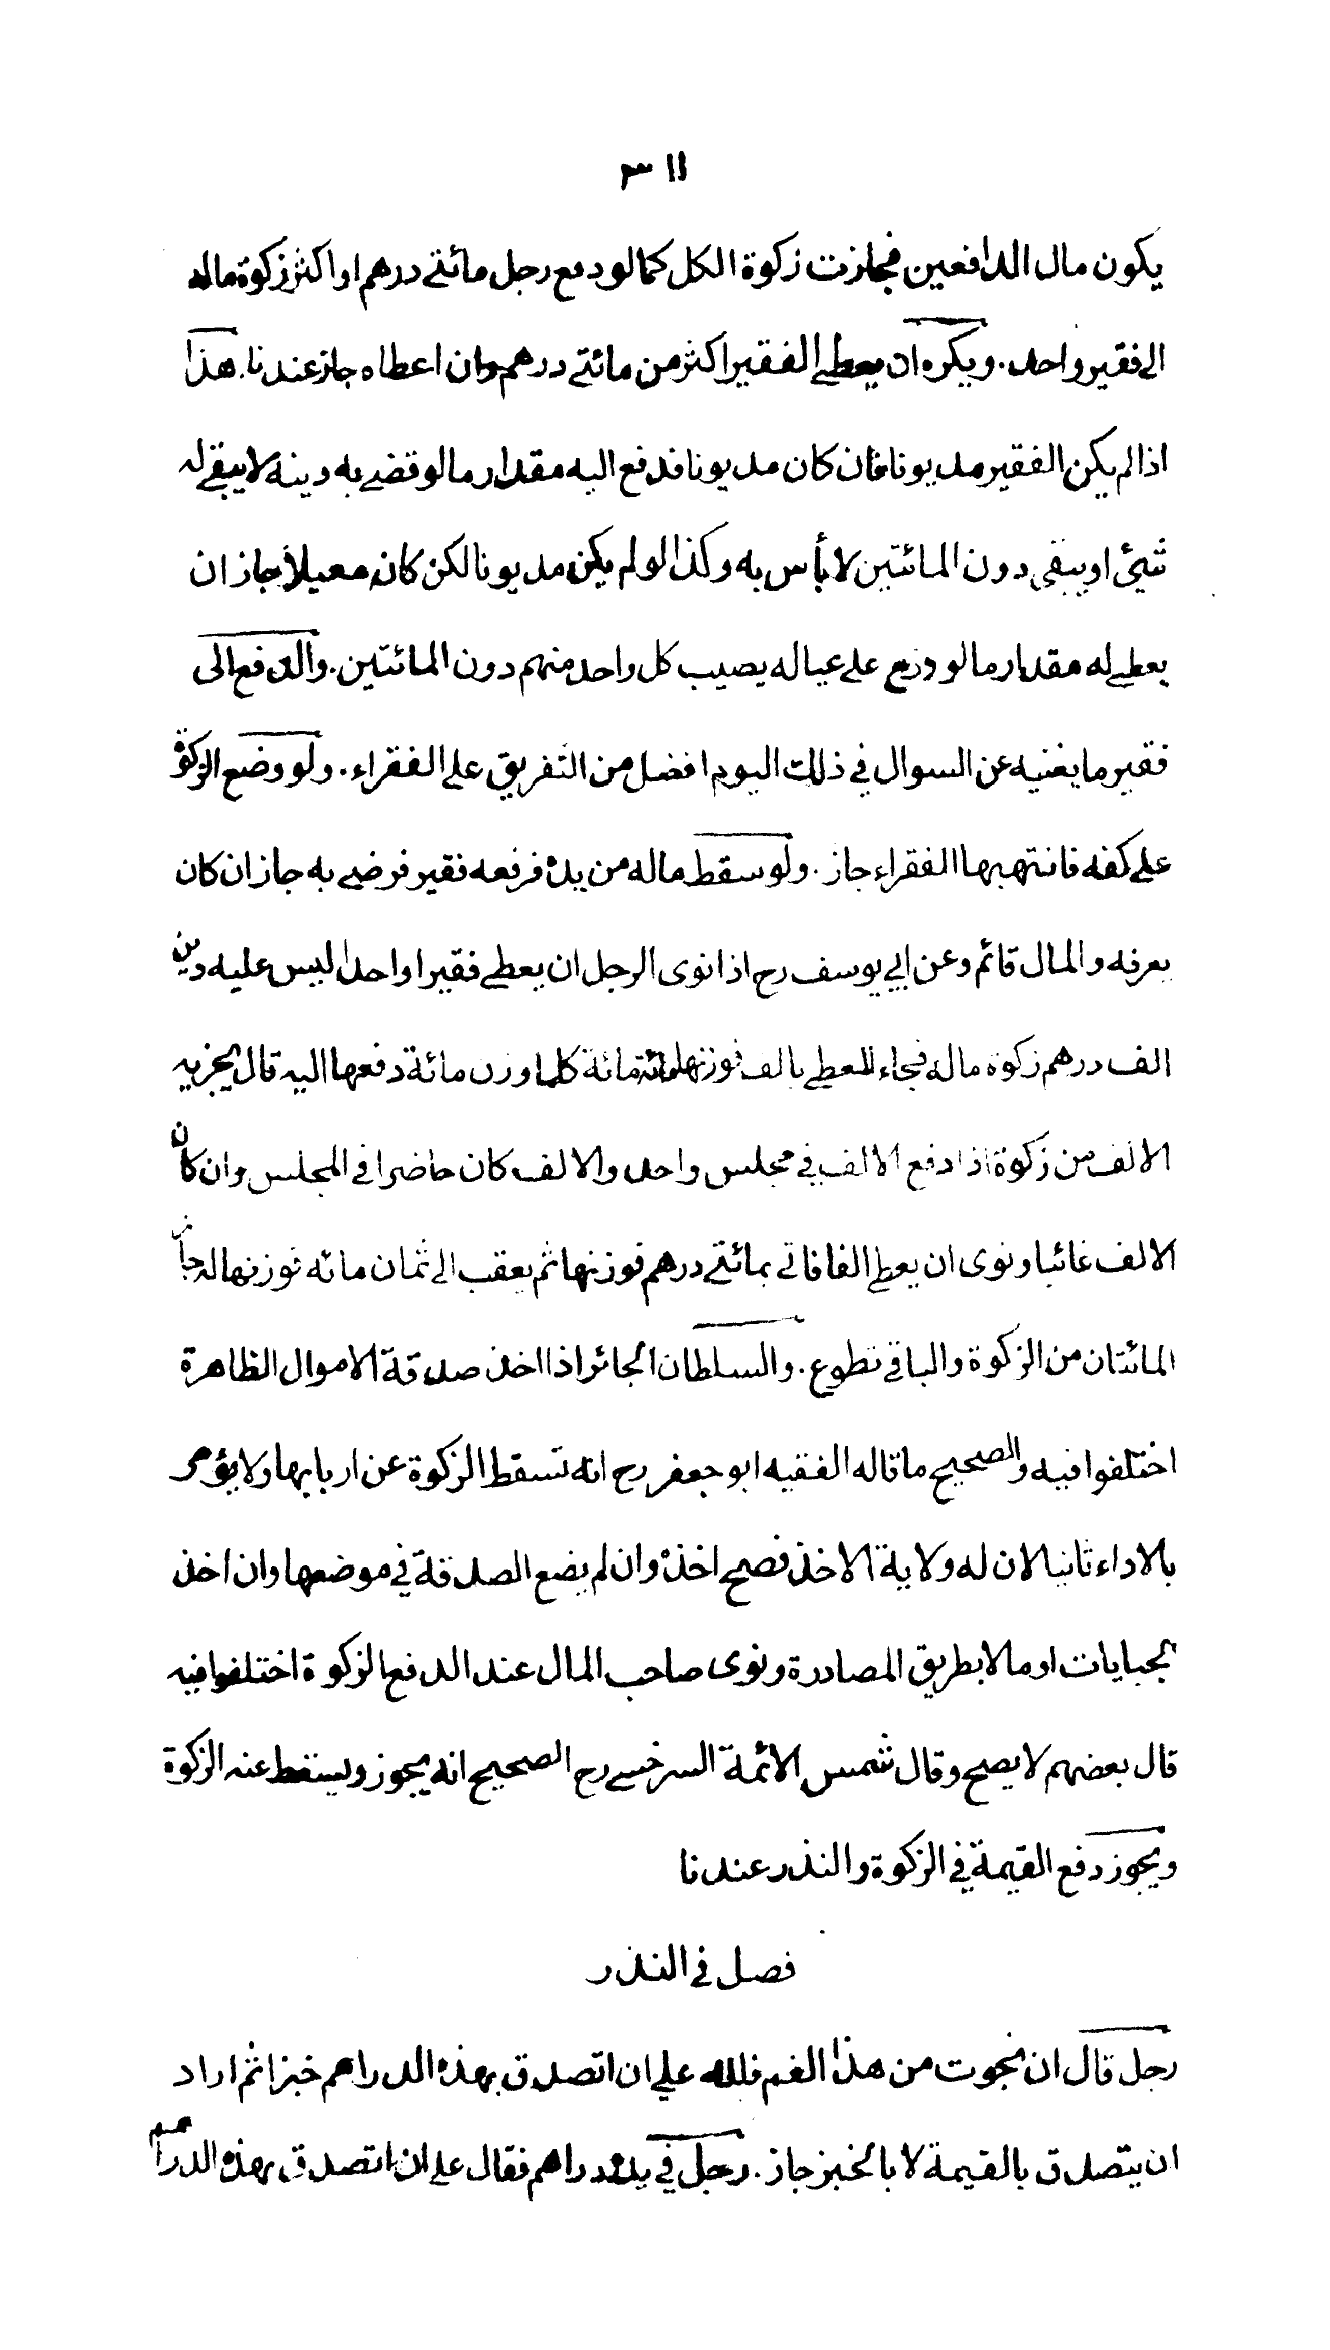 ٣١١
يكون مال الدافعين فجازت زكوة الكل كما لو دفع رجل مائتى درهم او اكثر زكوة ماله
الى فقير واحد . ويكره ان يعطى الفقير اكثر من مائتى درهم وان اعطاه جاز عندنا . هذا
اذا لم يكن الفقير مديونا فان كان مديونا فدفع اليه مقدار ما لو قضى به دينه لا يبقى له
شيئ او يبقى دون المائتين لا بأس به وكذا لو لم يكن مديونا لكن كان معيلا جاز ان
يعطى له مقدار ما لو وزع على عياله يصيب كل واحد منهم دون المائتين . والدفع الى
فقير ما يغنيه عن السوال في ذلك اليوم افضل من التفريق على الفقراء . ولو وضع الزكوة
على كفه فانتهبها الفقراء جاز . ولو سقط ماله من يده فرفعه فقير فرضى به جاز ان كان
يعرفه والمال قائم وعن ابي يوسف رح اذا نوى الرجل ان يعطى فقيرا واحدا ليس عليه دين
الف درهم زكوة ماله فجاء المعطى بالف فوزنها مائة مائة كلما وزن مائة دفعها اليه قال يجزيه
الالف من زكوة اذا دفع الالف في مجلس واحد والالف كان حاضرا في المجلس وان كان
الالف غائبا ونوى ان يعطى الفا فاتى بمائتى درهم فوزنها ثم يعقب الى ثمان مائه فوزنها له جاز
المائتان من الزكوة والباقي تطوع . والسلطان الجائر اذا اخذ صدقة الاموال الظاهرة
اختلفوا فيه والصحيح ما قاله الفقيه ابو جعفر رح انه تسقط الزكوة عن اربابها ولا يؤمر
بالاداء ثانيا لان له ولاية الاخذ فصح اخذه وان لم يضع الصدقة في موضعها وان اخذ
الجبايات او مالا بطريق المصادرة ونوى صاحب المال عند الدفع الزكوة اختلفوا فيه
قال بعضهم لا يصح وقال شمس الائمة السرخسى رح الصحيح انه يجوز ويسقط عنه الزكوة
ويجوز دفع القيمة في الزكوة والنذر عندنا
فصل في النذر
رجل قال ان نجوت من هذا الغم فلله على ان اتصدق بهذه الدراهم خبزا ثم اراد
ان يتصدق بالقيمة لا بالخبز جاز . رجل في يده دراهم فقال على ان اتصدق بهذه الدراهم